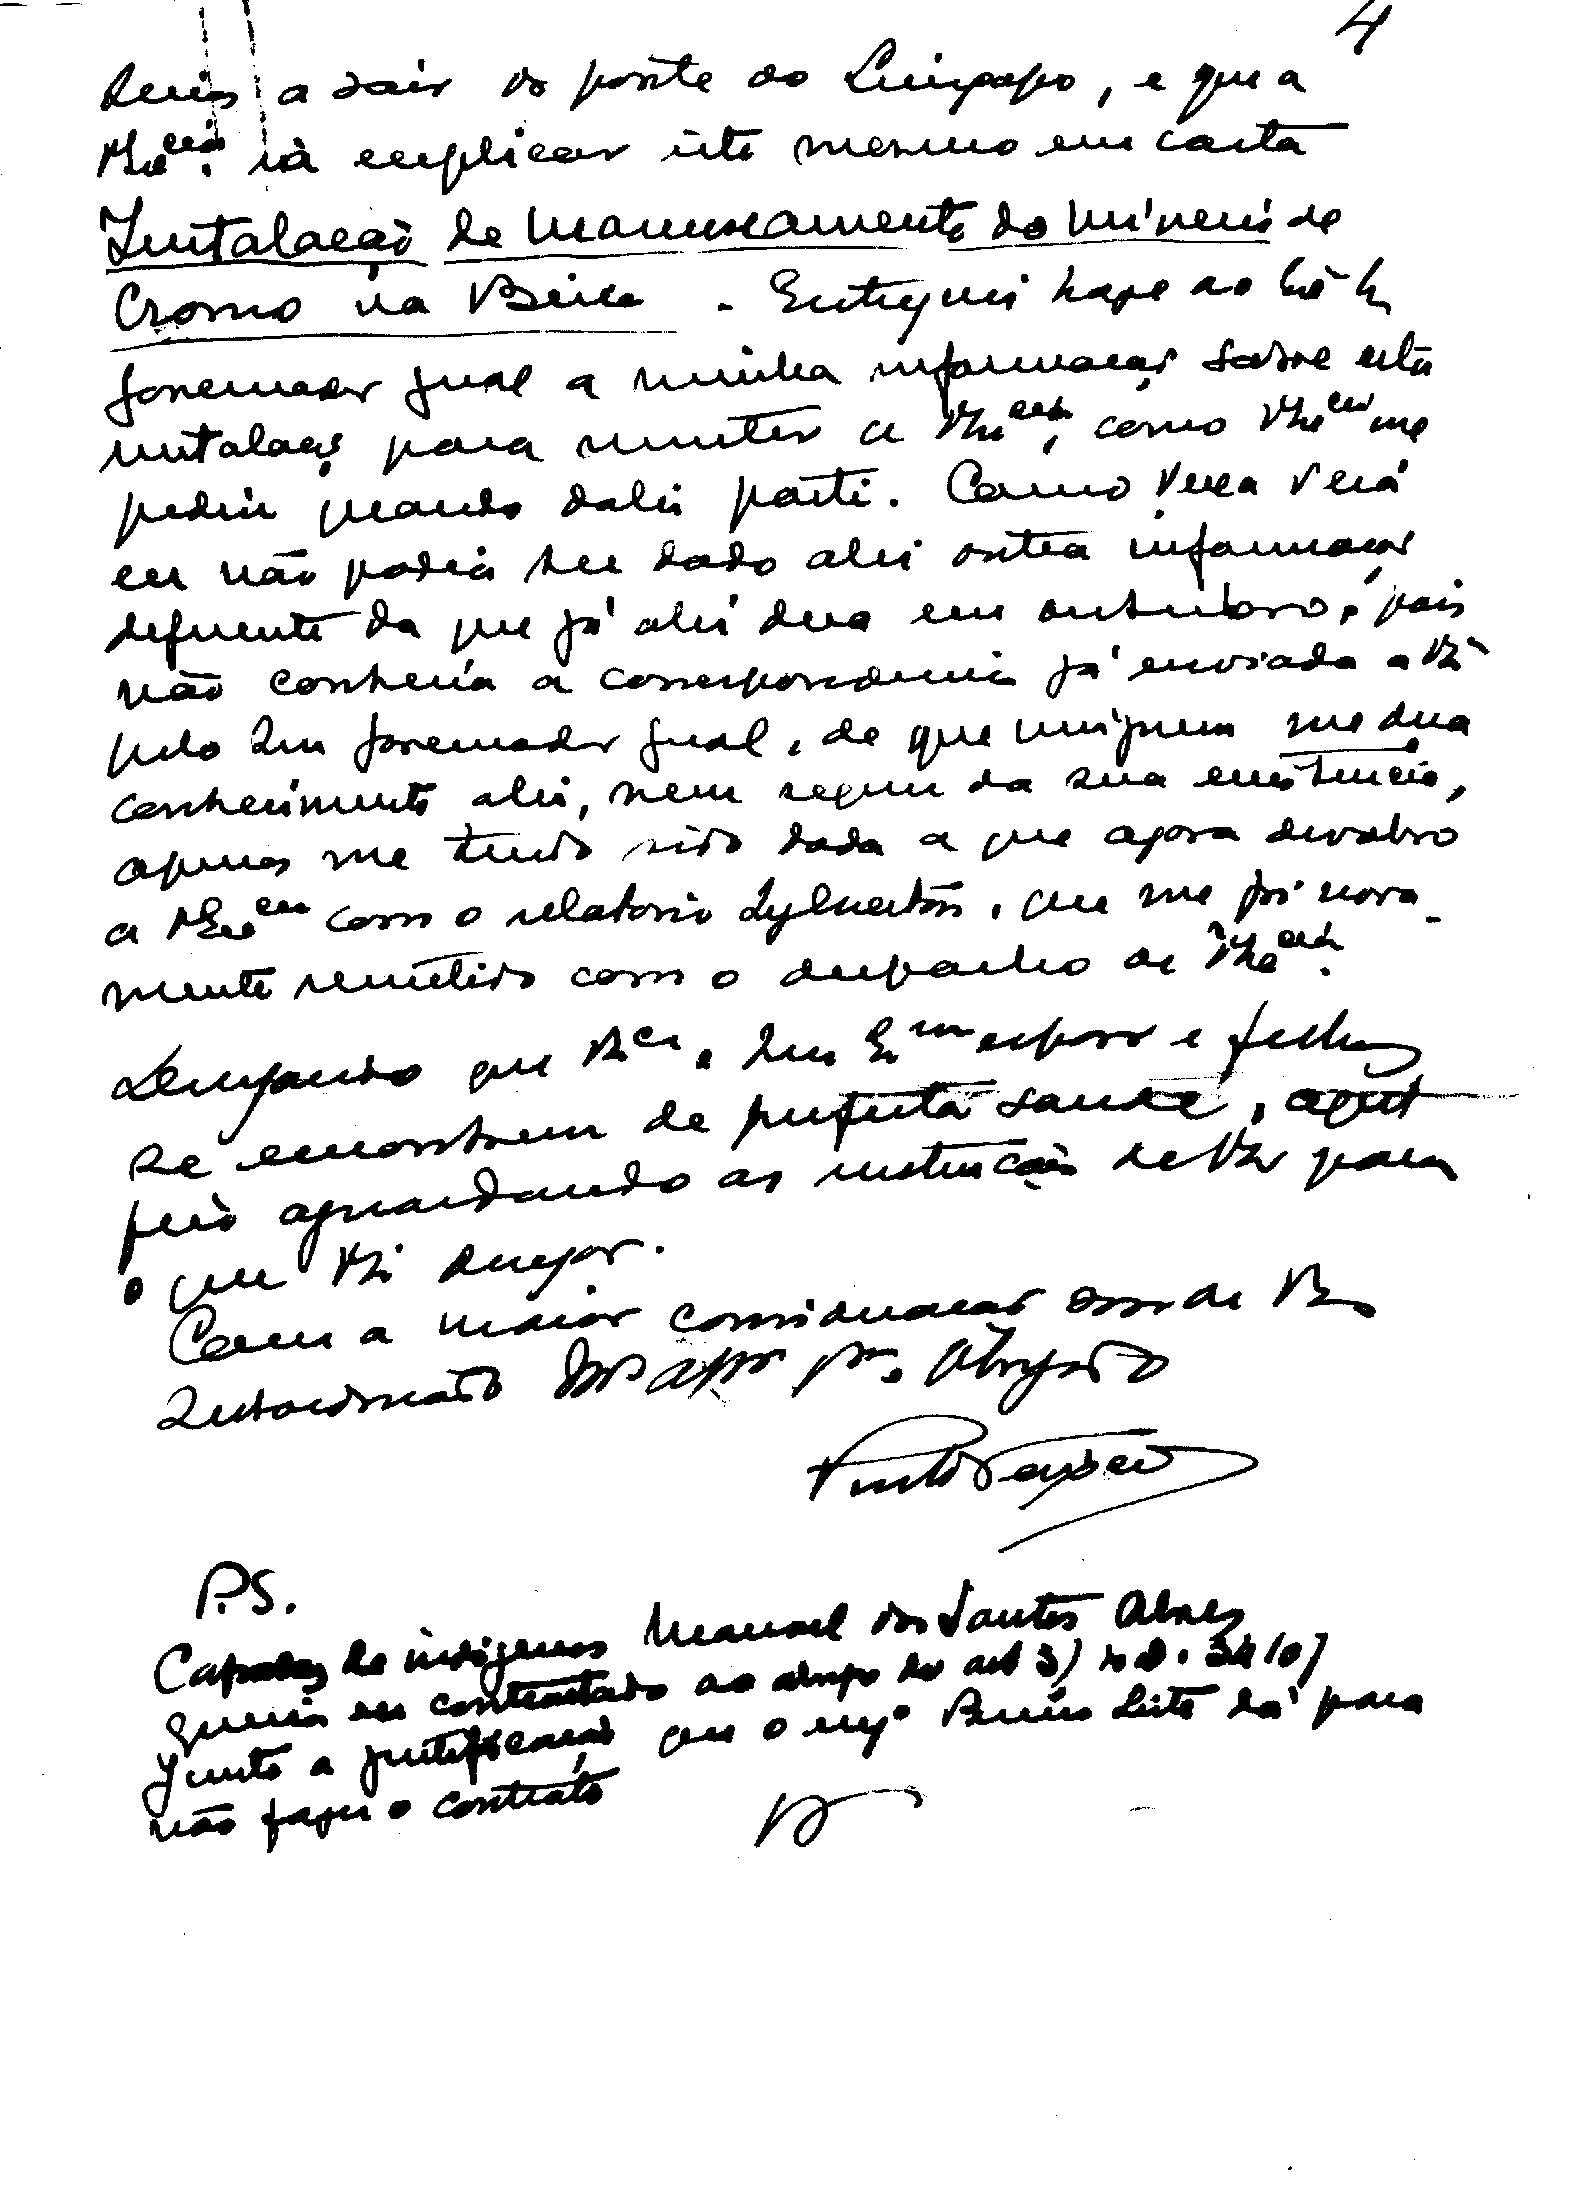 4
a sair da ponte do Limpopo, e que a
V. Ex.cia irá explicar isto mesmo em carta
Instalação de Manuseamento do Minerio de
Cromo na Beira - Entreguei hoje ao
Governador Geral a minha informação sobre esta
instalação para remeter a V. Ex.cia, como V. Ex.cia me
pediu quando dali parti. Como verá
eu não podia ter dado ali outra informação
diferente da que já ali dera em outubro, pois
não conhecia a correspondencia já enviada a V. Ex.
pelo Snr Governador Geral, de que ninguem me dera
conhecimento ali, nem sequer da sua existencia,
apenas me tendo sido dada a que agora devolvo
a V. Ex.cia com o relatorio, que me foi nova-
mente remetido com o despacho de V. Ex.cia.
Desejando que V. Ex.cia, Sua Ex.ma esposa e filhos
se encontrem de perfeita saude, aqui
fico aguardando as instruções de V. Ex. para
o que V. Ex. desejar.
Com a maior consideração sou de V. Ex.
Subordinado Obrigado
Pinto Teixeira
P.S.
Capataz de indigenas Manuel dos Santos Alves
queria ser contratado ao abrigo do art 3) do d. 34107
Junto a justificação que o eng.o Leite dá para
não fazer o contrato